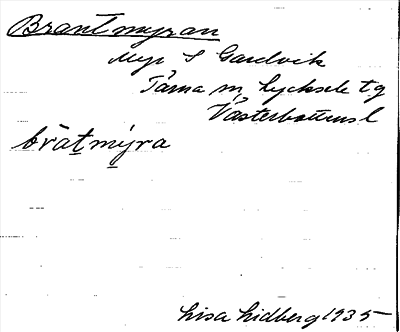 Brantmyran
Myr S Gardvik
Tärna sn, Lycksele tg
Västerbottens l
bràt̲mýra
Lisa Lidberg 1935